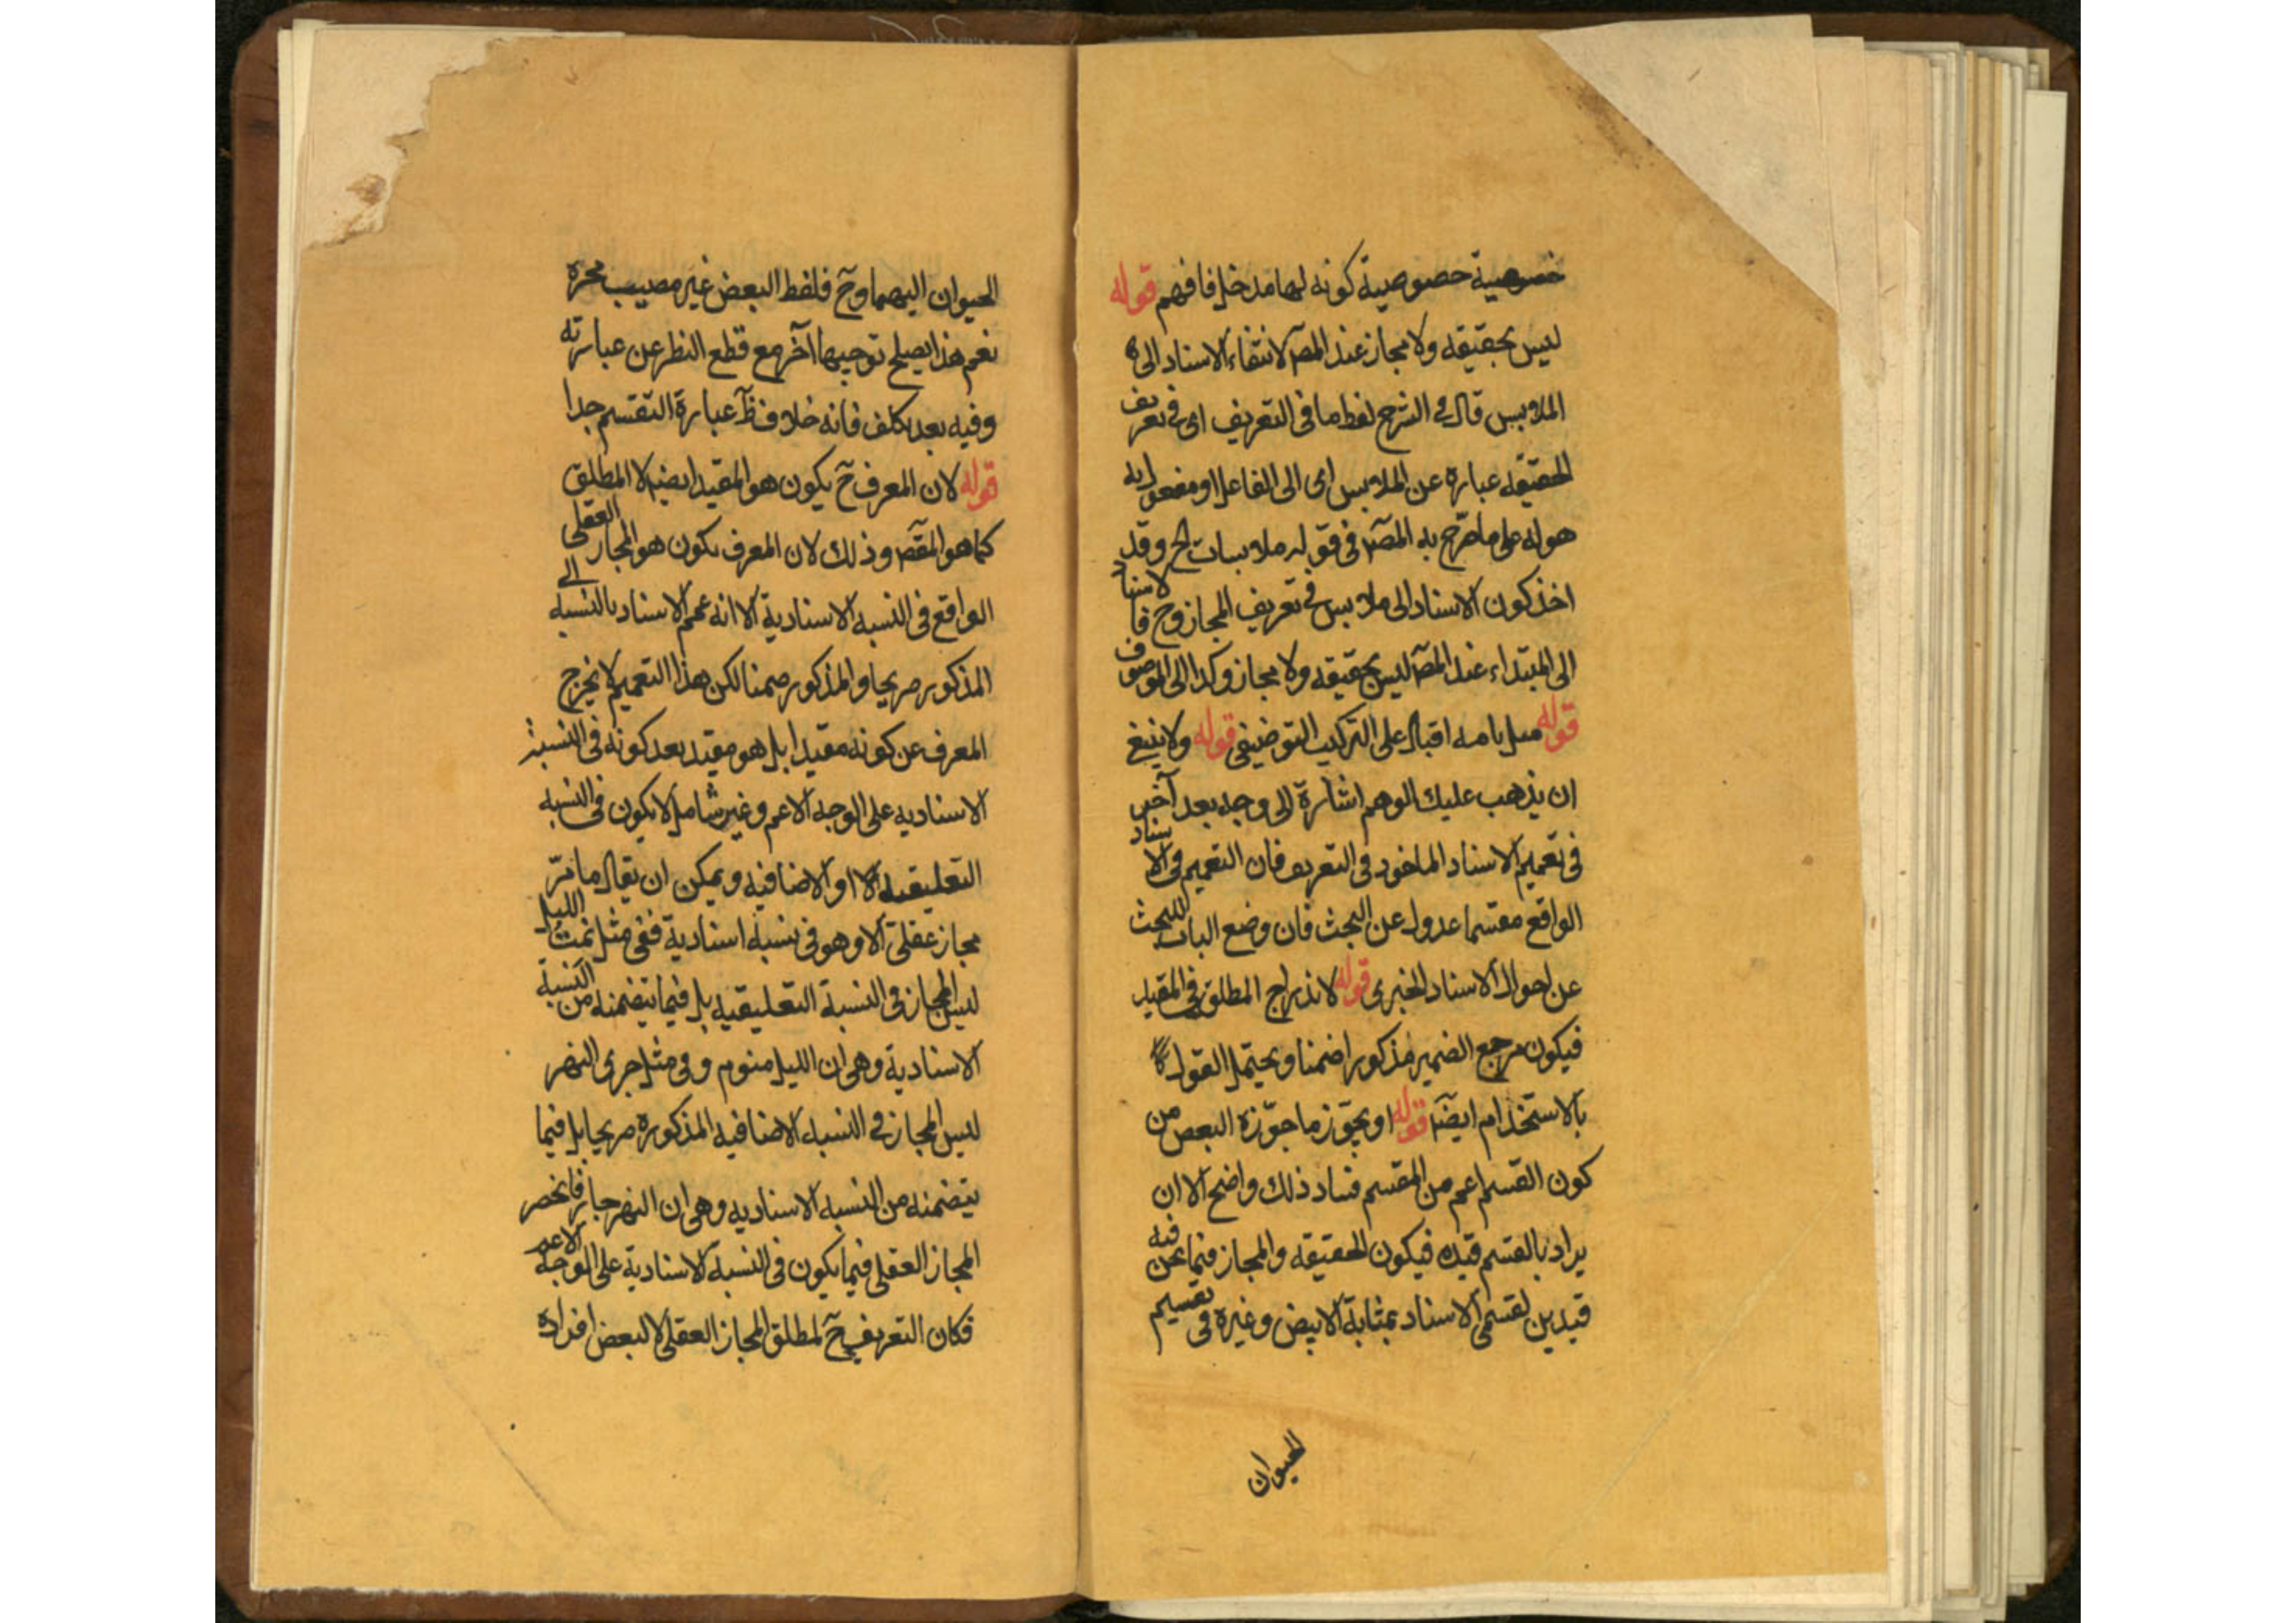 خصوصية حصوصيية كونه لها مدخل فافهم قوله
ليس بحقيقه ولا مجاز عند المصـ لانتفاء الاسناد الى
الملابس قال في الشرح لفظ ما فى التعريف اى في تعريف
الحقيقه عباره عن الملابس اى الى الفاعل او مفعول به
هو له على ما صرّح به المصـ فى قوله ملابسات الخ وقد
اخذ كون الاسناد الى ملابس في تعريف المجاز وح فالاسناد
الى المبتداء عند المصـ ليس بحقيقه ولا مجاز وكذا الى الموصوف
قوله اقبال على التركيب التوصيفى قوله ولا ينبغ
ان يذهب عليك الوهم اشارة الى وجه بعد آخر
فى تعميم الاسناد الماخود فى التعريف فان التعميم فى الاسناد
الواقع مقسما عدول عن البحث فان وضع الباب للبحث
عن احوال الاسناد الخبرى قوله لاندراج المطلق فى المقيد
فيكون مرجع الضمير مذكورا ضمنا ويحتمل القول
بالاستخدام ايضـ قوله او بجوّز ما جوّزه البعض من
كون القسم اعم من المقسم فساد ذلك واضح الا ان
يراد بالقسم قيده فيكون الحقيقه والمجاز فيما نحن فيه
قيدين لقسمى الاسناد بمثابة الابيض وغيره فى تقسيم
الحيوان
الحيوان اليهما وح فلفظ البعض غير مصيب محزه
نعم هذا يصلح توجيها آخر مع قطع النظر عن عبارته
وفيه بعد تكلف فانه خلاف ظ عبارة التقسم جدا
قوله لان المعرف ح يكون هو المقيد ايضـ لا المطلق
كما هو المقصـ وذلك لان المعرف يكون هو المجاز العقلى
الواقع فى النسبه الاسنادية الا انه عمم الاسناد بالنسبه الى
المذكور صريحا والمذكور ضمنا لكن هذا التعميم لا يخرج
المعرف عن كونه مقيدا بل هو مقيد بعد كونه فى النسبة
الاسناديه على الوجه الاعم وغير شامل لا يكون فى النسبه
التعليقيه الا او الاضافيه ويمكن ان يقال ما من
مجاز عقلى الا وهو فى نسبة اسنادية ففى مثل نمت الليل
ليس المجاز فى النسبة التعليقيه بل فيما يتضمنه من النسبة
الاسنادية وهى ان الليل منوم وفى مثل جرى النهر
ليس المجاز في النسبه الاضافيه المذكوره صريحا بل فيما
يتضمنه من النسبه الاسناديه وهى ان النهر جار فانحصر
المجاز العقلى فيما يكون فى النسبة الاسنادية على الوجه الاعم
فكان التعريف ح لمطلق المجاز العقلى لا لبعض افراده